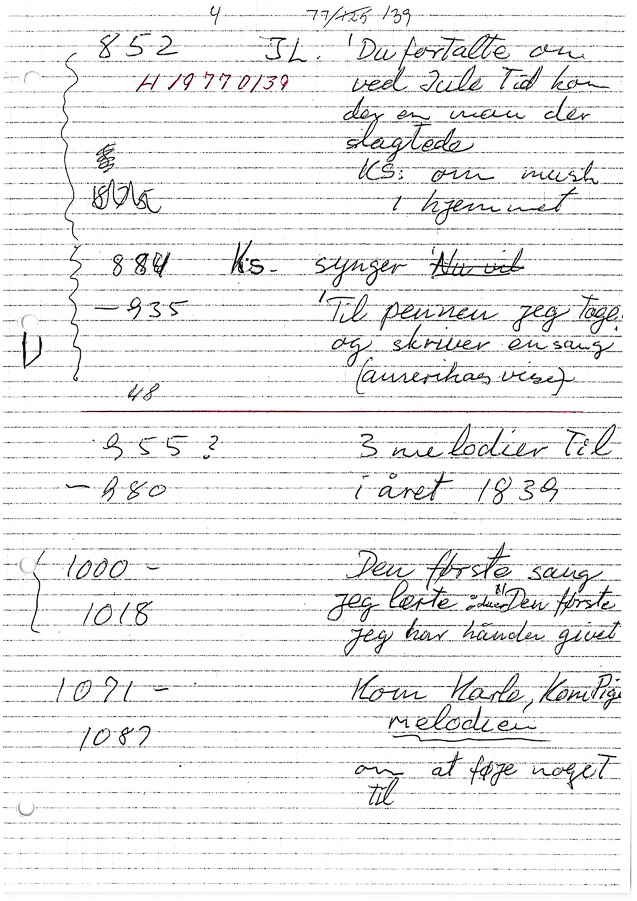 4 77/125 /39
852 IL. 'Du fortalte om
H 19770139 ved Jule Tid kom
der en man der
slagtede
KS: om musik
i hjemmet
884 Ks. synger 'Nu vil
- 935 'Til pennen jeg tage
og skriver en sang
(amerikas vise)
48
D
955? 3 melodier Til
- 980 i året 1839
1000 - Den første sang
1018 jeg lærte Den første
jeg har hånden givet
1071 - Kom Karle, Kom Pige
1087 melodien
om at føje noget
til